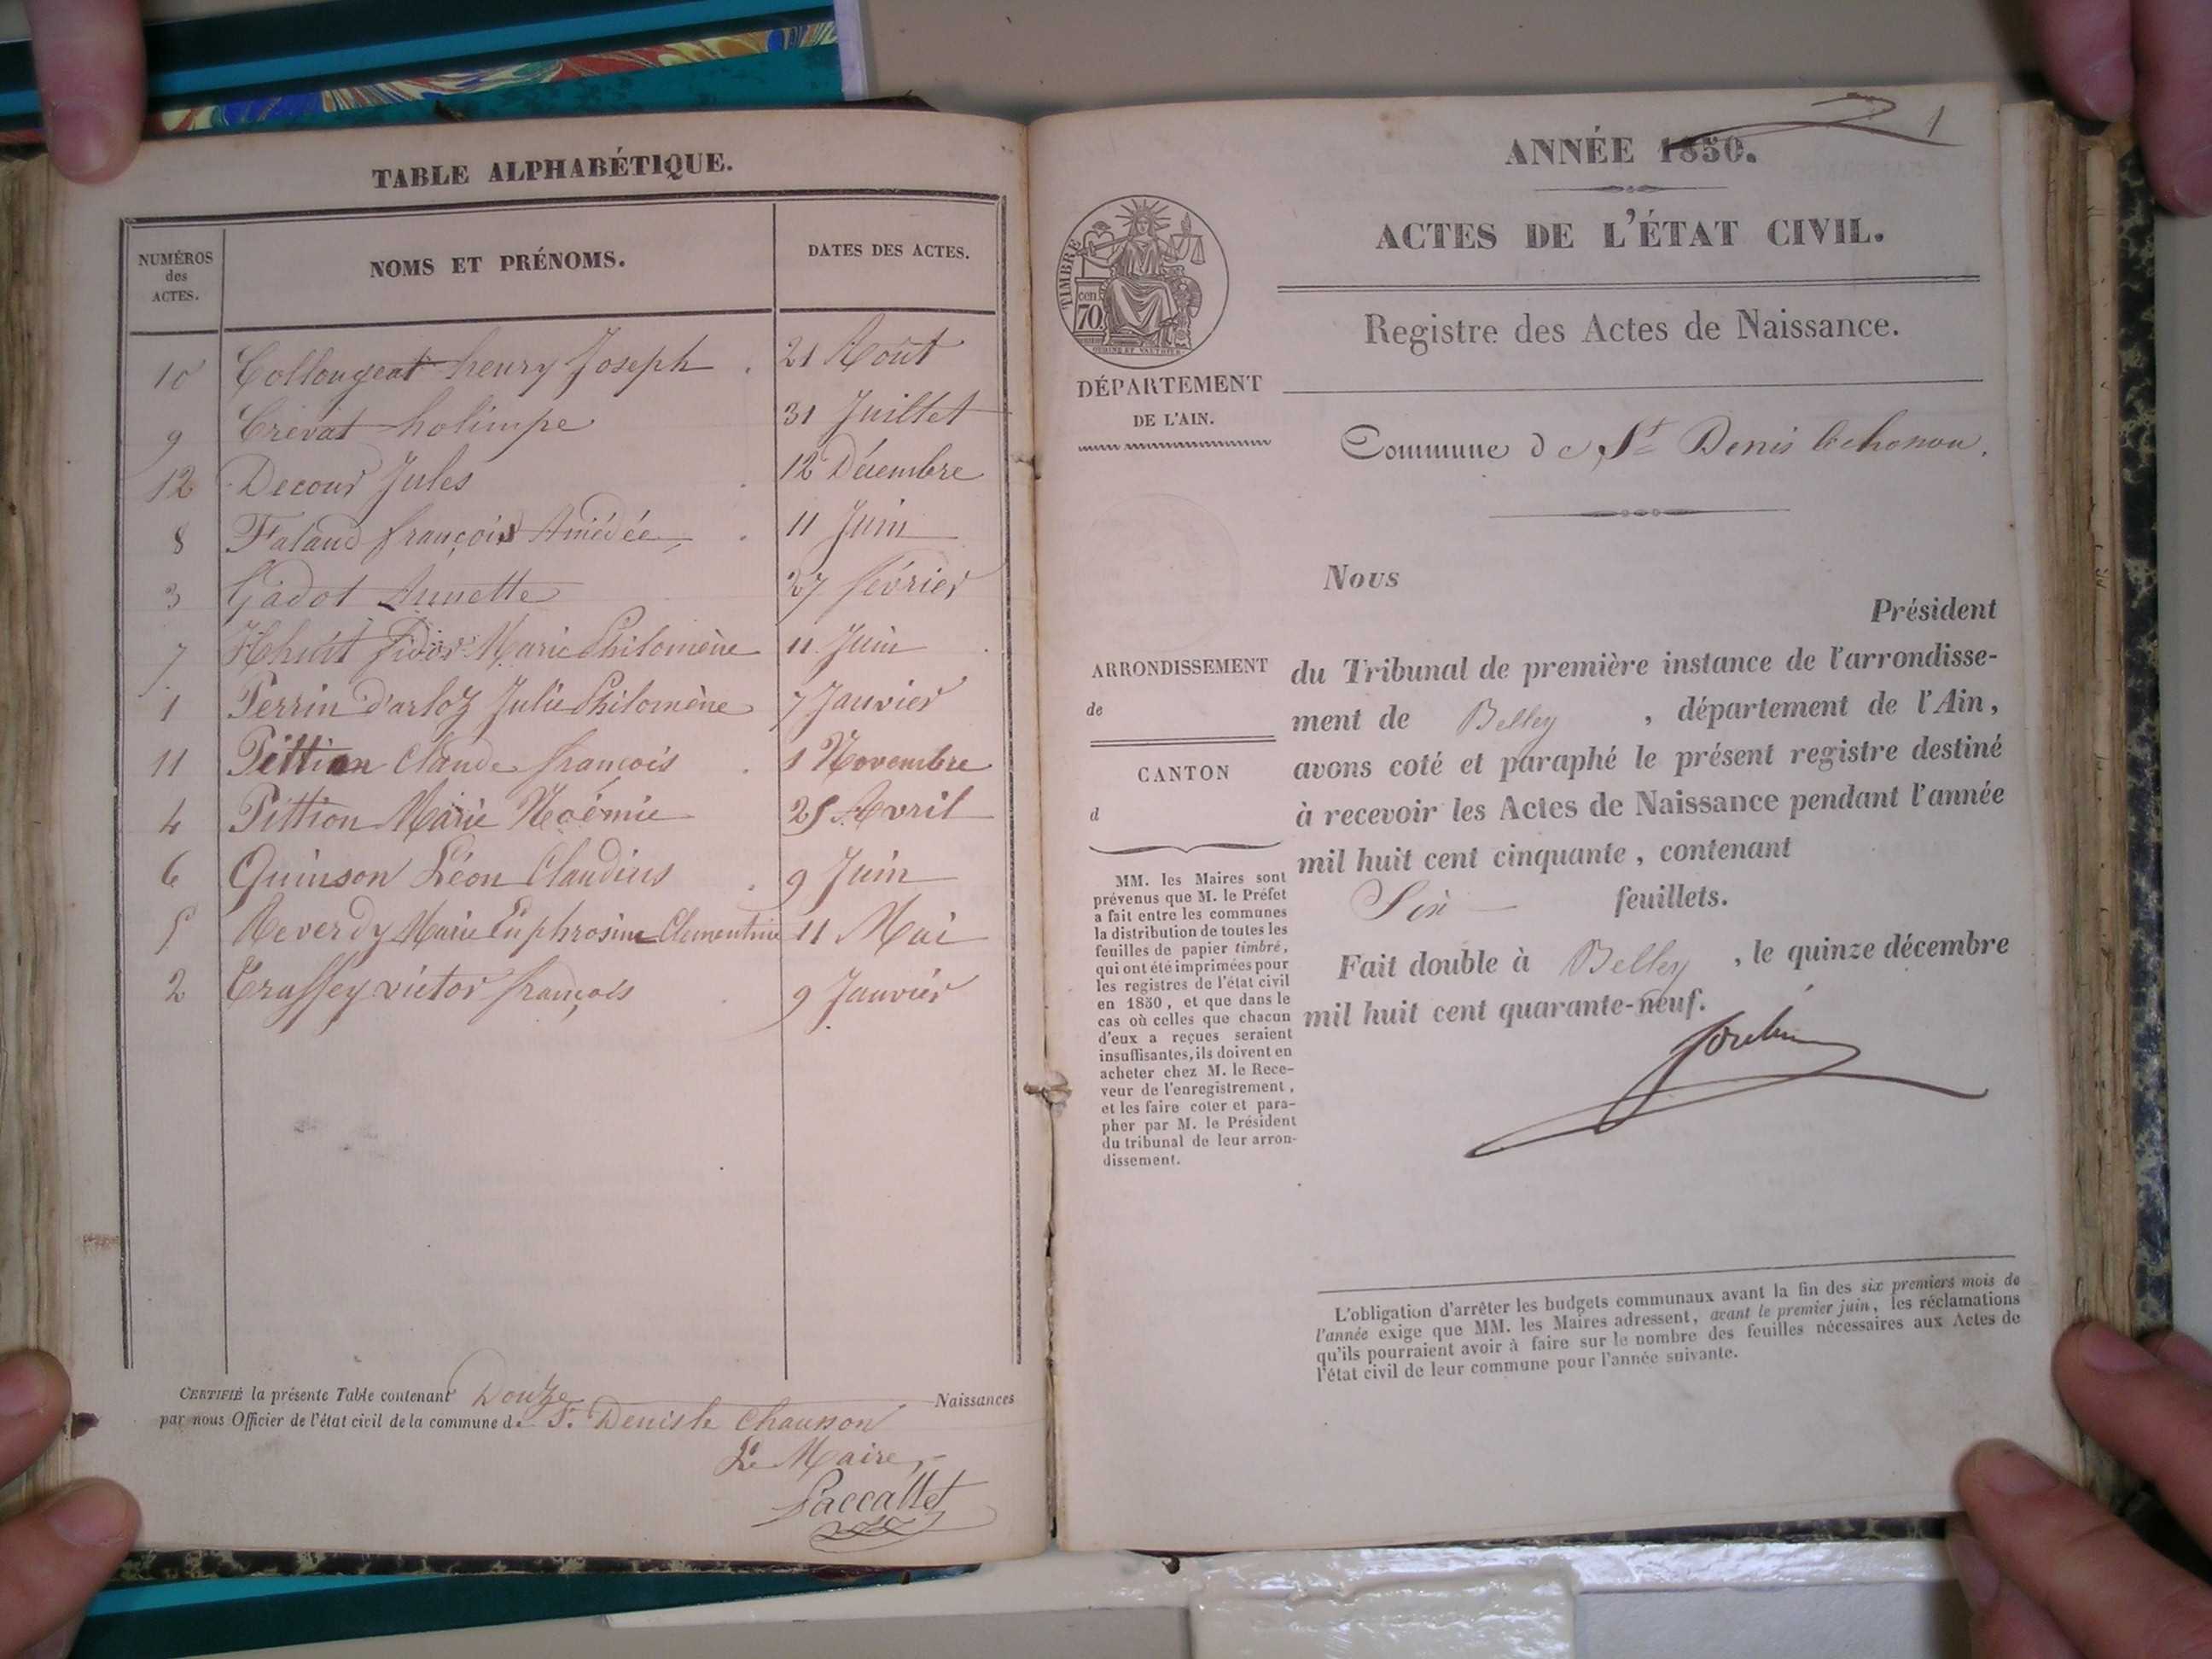 TABLE ALPHABÉTIQUE.
NUMÉROS des ACTES. NOMS ET PRÉNOMS. DATES DES ACTES.
10 Collongeat henry Joseph . 21 Août
9 Crévat holimpe 31 Juillet
12 Decour Jules . 12 Décembre
8 Falaud françois Amédée . 11 Juin
3 Gadot Annette 27 février
7 Marie Philomène 11 Juin
1 Perrin d'arloz Julie Philomène 7 Janvier
11 Pittion Claude françois . 1 Novembre
4 Pittion Marie Noémie 25 Avril
6 Quinson Léon Claudius . 9 Juin
5 Reverdy Marie Euphrosine Clementine 11 Mai
2 Traffey victor françois 9 Janvier
CERTIFIÉ la présente Table contenant Douze Naissances
par nous Officier de l'état civil de la commune de St. Denis le Chausson
Le Maire,
Paccallet
1
ANNÉE 1850.
ACTES DE L'ÉTAT CIVIL.
Registre des Actes de Naissance.
TIMBRE
70 cen.
DÉPARTEMENT
DE L'AIN.
Commune de St Denis lechosson.
Nous
Président
ARRONDISSEMENT
de
CANTON
d
du Tribunal de première instance de l'arrondisse-
ment de Belley , département de l'Ain,
avons coté et paraphé le présent registre destiné
à recevoir les Actes de Naissance pendant l'année
mil huit cent cinquante, contenant
Six feuillets.
Fait double à Belley , le quinze décembre
mil huit cent quarante-neuf.
MM. les Maires sont
prévenus que M. le Préfet
a fait entre les communes
la distribution de toutes les
feuilles de papier timbré,
qui ont été imprimées pour
les registres de l'état civil
en 1850, et que dans le
cas où celles que chacun
d'eux a reçues seraient
insuffisantes, ils doivent en
acheter chez M. le Rece-
veur de l'enregistrement,
et les faire coter et para-
pher par M. le Président
du tribunal de leur arron-
dissement.
L'obligation d'arrêter les budgets communaux avant la fin des six premiers mois de
l'année exige que MM. les Maires adressent, avant le premier juin, les réclamations
qu'ils pourraient avoir à faire sur le nombre des feuilles nécessaires aux Actes de
l'état civil de leur commune pour l'année suivante.